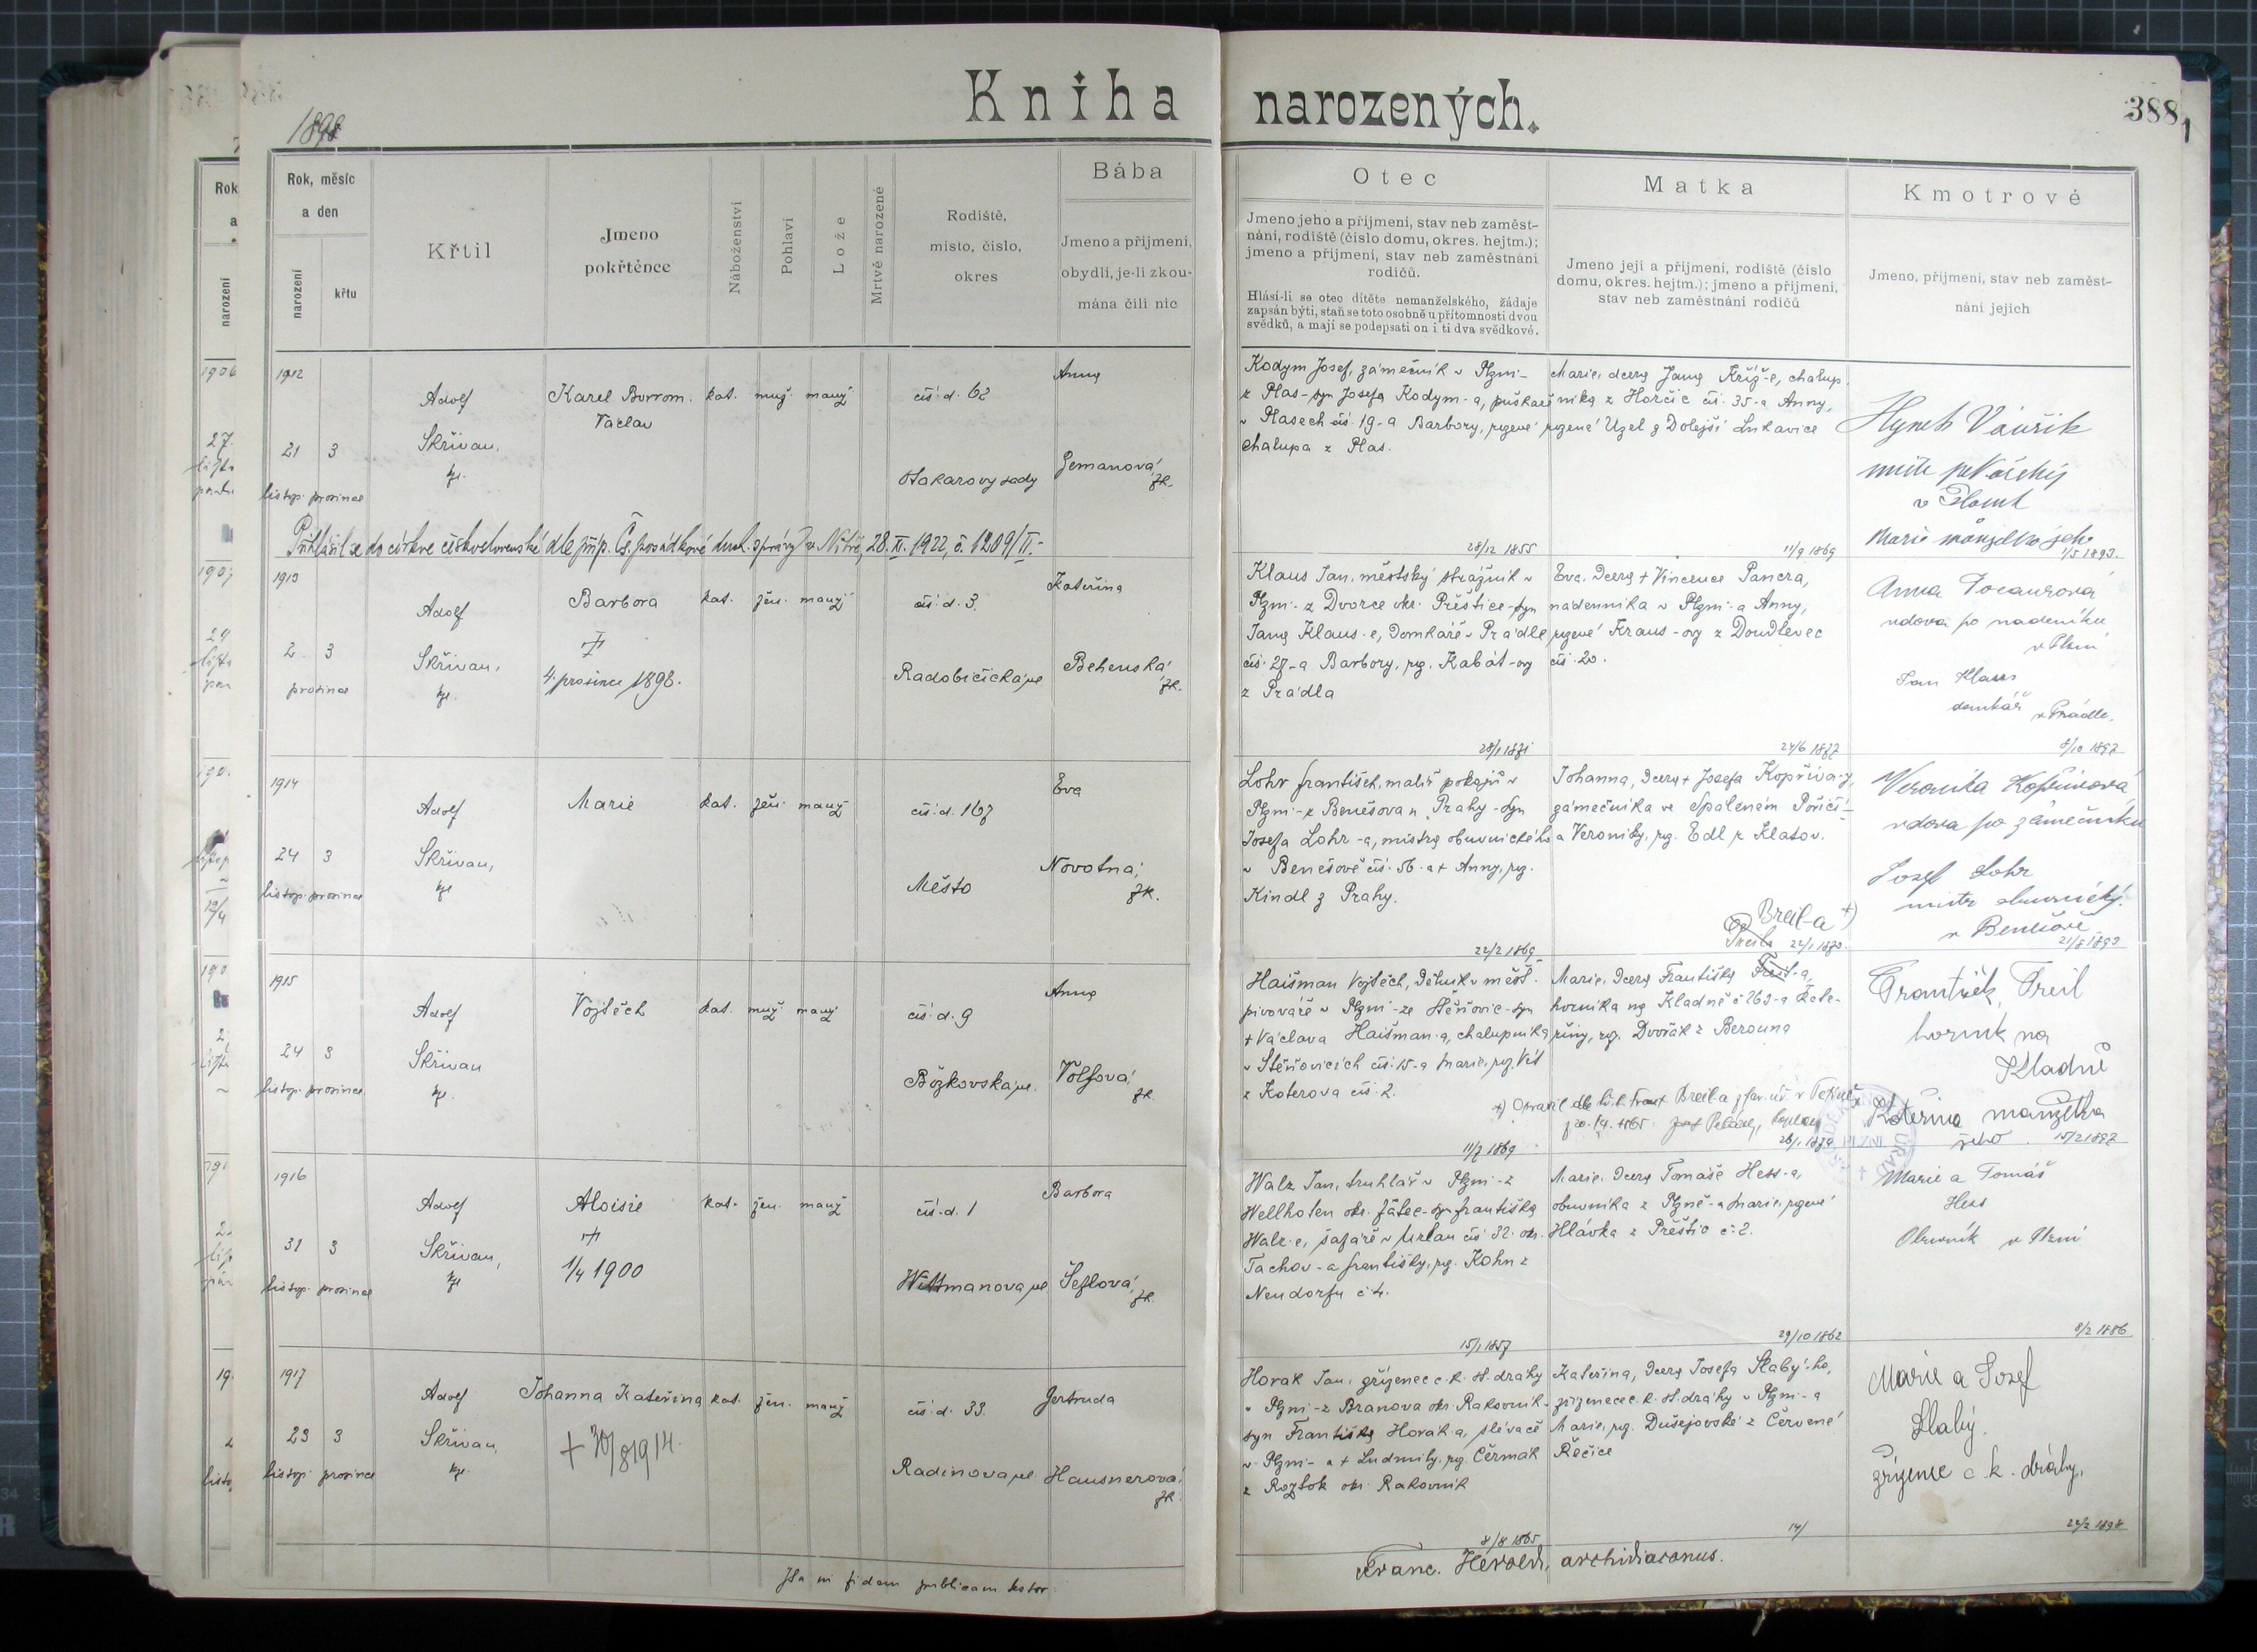 Kniha narozených.
388
1898
Rok, měsíc
a den
narození
křtu
Křtil
Jmeno
pokřtěnce
Náboženství
Pohlaví
Lože
Mrtvě narozené
Rodiště,
místo, číslo,
okres
Bába
Jmeno a příjmení,
obydlí, je-li zkou-
mána čili nic
Otec
Jmeno jeho a příjmení, stav neb zaměst-
nání, rodiště (číslo domu, okres. hejtm.);
jmeno a příjmení, stav neb zaměstnání
rodičů.
Hlásí-li se otec dítěte nemanželského, žádaje
zapsán býti, staň se toto osobně u přítomnosti dvou
svědků, a mají se podepsati on i ti dva svědkové.
Matka
Jmeno její a příjmení, rodiště (číslo
domu, okres. hejtm.); jmeno a příjmení,
stav neb zaměstnání rodičů
Kmotrové
Jmeno, příjmení, stav neb zaměst-
nání jejich
1912
21 3
listop. prosince
Adolf
Skřivan,
Karel Borrom.
Václav
kat. muž. manž
čís. d. 62
Otakarovy sady
Anna
Zemanová,
zk.
Kodym Josef, zámečník v Plzni-
z Plas-syn Josefa Kodym-a, puškaře
v Plasech čís. 19-a Barbory, rozené
Chalupa z Plas.
28/12 1855
Marie, dcera Jana Kříž-e, chalup.
níka z Horčic čís. 35-a Anny,
rozené Uzel z Dolejší Lukavice
11/9 1869
Hynek Vávřík
Marie manželka jeho
1/5 1893.
Přihlásil se do církve československé dle příp. Čs. posádkové duch. správy v Nitře, 28. XI. 1922, č. 1209/II.-
1913
2 3
prosince
Adolf
Skřivan,
Barbora
4. prosince 1898.
kat. žen. manž
čís. d. 3.
Radobičická ul.
Kateřina
Behenská,
zk.
Klaus Jan, městský strážník v
Plzni-z Dvorce okr. Přeštice-syn
Jana Klaus-e, domkáře v Prádle
čís. 27-a Barbory, roz. Kabát-ovy
z Prádla
28/1 1871
Eva, dcera + Vincence Pancra,
nádenníka v Plzni-a Anny,
rozené Kraus-ovy z Doudlevec
čís. 20.
24/6 1877
Anna
vdova po nádeníku
v Plzni
Jan Klaus
domkář v Prádle.
8/10 1897
1914
24 3
listop. prosince
Adolf
Skřivan,
Marie
kat. žen. manž
čís. d. 167
Město
Eva
Novotná,
zk.
Lohr František, malíř pokojů v
Plzni-z Benešova u Prahy-syn
Josefa Lohr-a, mistra obuvnického
v Benešově čís. 56-a + Anny, roz.
Kindl z Prahy.
22/2 1869
Johanna, dcera + Josefa Kopřiva-y,
zámečníka ve Spáleném Poříčí-
a Veroniky, roz. Edl z Klatov.
22/1 1870.
Veronika Kopřivová
vdova po zámečníku
Josef Lohr
mistr obuvnický
v Benešově
21/8 1893
1915
24 3
listop. prosince
Adolf
Skřivan
Vojtěch
kat. muž manž
čís. d. 9
Božkovská ul.
Anna
Volfová,
zk
Haišman Vojtěch, dělník v měšť.
pivováře v Plzni-ze Štěnovic-syn
+ Václava Haišman-a, chalupníka
v Štěnovicích čís. 15-a Marie, roz. Vít
z Koterova čís. 2.
11/7 1869
Breil-a +)
Marie, dcera Františka Treil-a,
horníka na Kladně č. 263-a Kate-
řiny, roz. Dvořák z Berouna
26/1 1874
František Treil
horník na
Kladně
Kateřina manželka
jeho 15/2 1897
1916
31 3
listop. prosince
Adolf
Skřivan,
Aloisie
1/4 1900
kat. žen. manž
čís. d. 1
Wittmanova ul
Barbora
Šeflová,
zk.
Walz Jan, truhlář v Plzni-z
Wellhoten okr. Žatec-syn Františka
Walz-e, šafáře v Urlau čís. 32. okr.
Tachov-a Františky, roz. Kohn z
Neudorfu č. 4.
15/1 1857
Marie, dcera Tomáše Hess-a,
obuvníka z Plzně-a Marie, rozené
Hlávka z Přeštic č. 2.
29/10 1862
Marie a Tomáš
Hess
Obuvník v Plzni
8/2 1886
1917
23 3
listop. prosince
Adolf
Skřivan,
Johanna Kateřina
+ 30/8 1914.
kat. žen. manž
čís. d. 33.
Radinova ul.
Gertruda
Hausnerová,
zk.
Horak Jan, zřízenec c. k. st. dráhy
v Plzni-z Branova okr. Rakovník-
syn Františka Horák-a, slévače
v Plzni-a + Ludmily, roz. Čermák
z Roztok okr. Rakovník
8/8 1865
Kateřina, dcera Josefa Slabý-ho,
zřízence c. k. st. dráhy v Plzni-a
Marie, roz. Dušejovské z Červené
Řečice
14/
Marie a Josef
Slabý
zřízenec c. k. dráhy.
24/2 1898
Ita in fidem publicam testor:
Franc. Herold, archidiaconus.